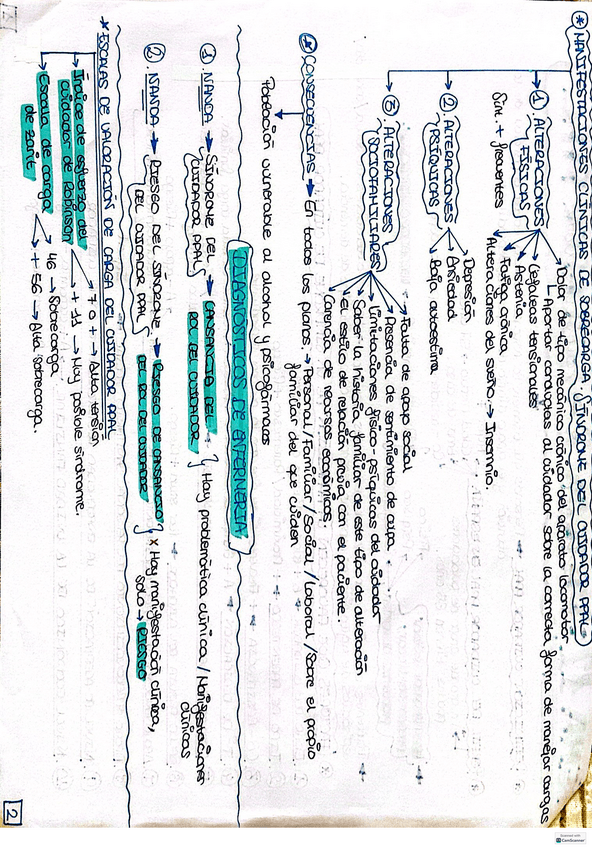 * MANIFESTACIONES CLÍNICAS DE SOBRECARGA SÍNDROME DEL CUIDADOR PPAL
1 ALTERACIONES FÍSICAS
Sint. + frecuentes
Dolor de tipo mecánico crónico del aparato locomotor
Aportar conductas al cuidador sobre la correcta forma de manejar cargas
Cefaleas tensionales
Astenia
Fatiga crónica
Alteraciones del sueño → Insomnio.
2. ALTERACIONES PSÍQUICAS
Depresión
Ansiedad
Baja autoestima
3. ALTERACIONES SOCIOFAMILIARES
Falta de apoyo social
Presencia de sentimiento de culpa
Limitaciones físico-psíquicas del cuidador
Saber la historia familiar de este tipo de alteración
El estilo de relación previa con el paciente.
Carencia de recursos económicos.
* CONSECUENCIAS → En todos los planos → Personal / Familiar / Social / Laboral / Sobre el propio
familiar del que cuiden
Población vulnerable al alcohol y psicofármacos
DIAGNÓSTICOS DE ENFERMERÍA
1 NANDA → SÍNDROME DEL CUIDADOR PPAL → CANSANCIO DEL ROL DEL CUIDADOR } Hay problemática clínica / Manifestaciones
clínicas
2. NANDA → RIESGO DEL SÍNDROME DEL CUIDADOR PPAL → RIESGO DE CANSANCIO DEL ROL DEL CUIDADOR } x Hay manifestación clínica,
solo → RIESGO
* ESCALAS DE VALORACIÓN DE CARGA DEL CUIDADOR PPAL
Índice de esfuerzo del cuidador de Robinson
7 o + → Alta tensión
+ 11 → Hay posible síndrome.
Escala de carga de zarit
46 → Sobrecarga
+ 56 → Alta sobrecarga.
2
Scanned with
CamScanner